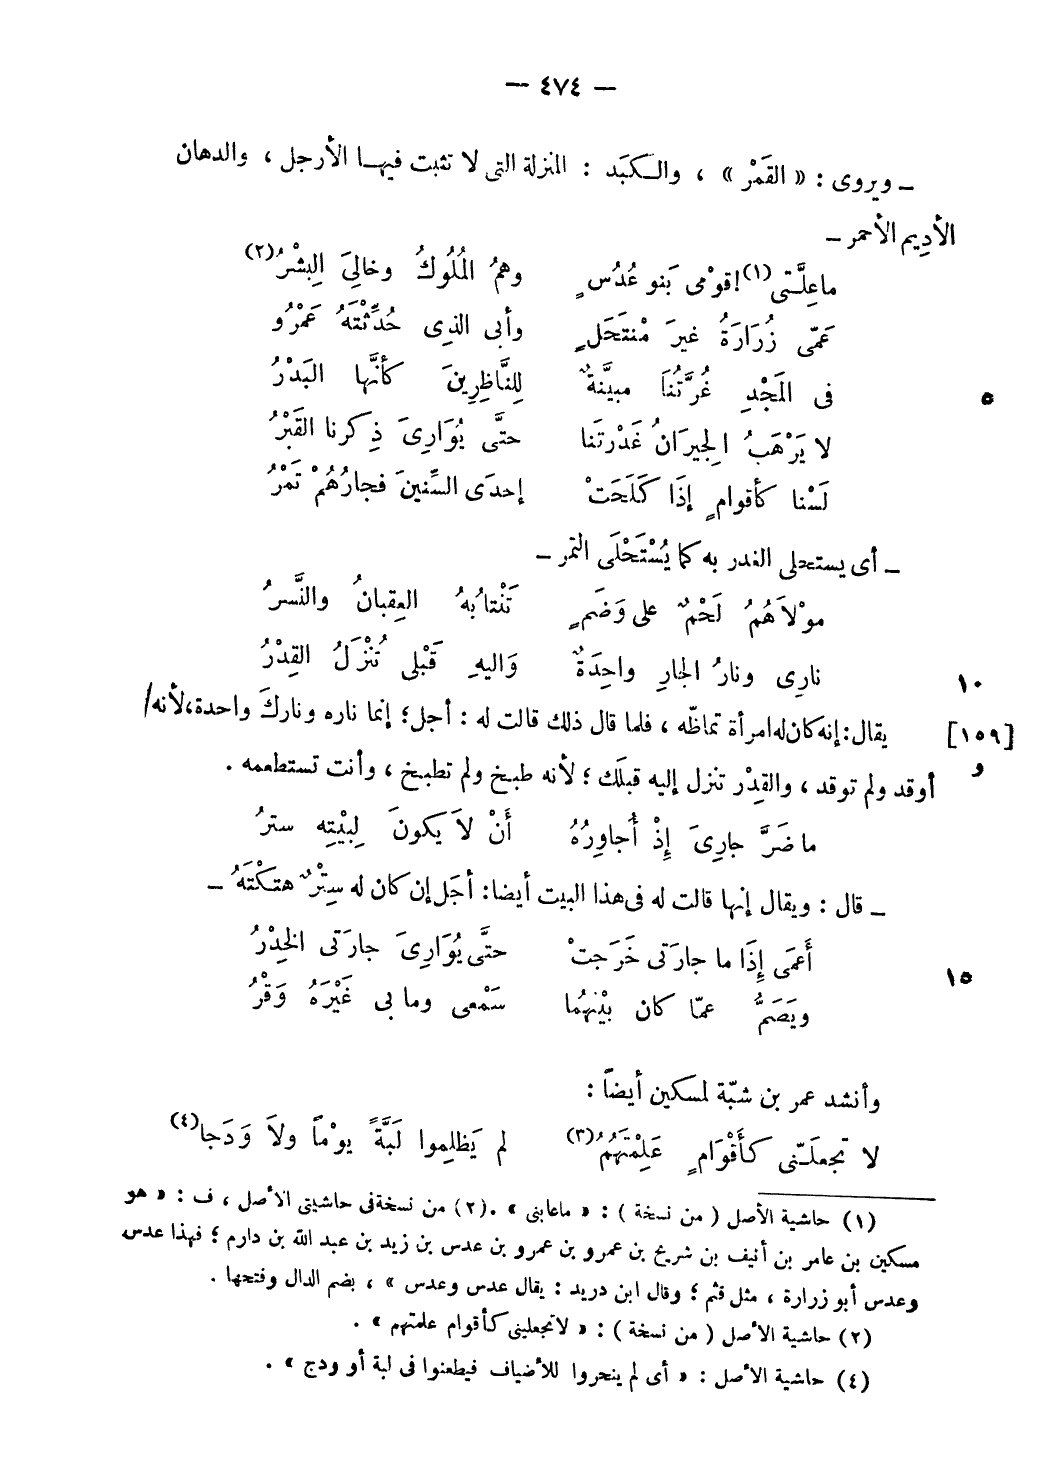 — ٤٧٤ —
ـ ويروى : « القَمْر » ، والـكَبَد : المنزلة التى لا تثبت فيهـا الأرجل ، والدهان
الأدِيم الأحمر ـ
ما عِلَّـتى(١)! قوْمى بَنو عُدُسٍ وهمُ المُلُوكُ وخالِىَ البِشْرُ(٢)
عَمّى زُرَارَةُ غيرَ مْنتَحَلٍ وأبى الذِى حُدِّثْتَهُ عَمْرُو
فى المَجْدِ غُرَّتُنَا مبيَّنةٌ لِلنَّاظِرِينَ كأنَّها البَدْرُ
٥
لا يَرْهَبُ الجِيرَانُ غَدْرتَنا حتَّى يُوَارِىَ ذِكرنا القَبْرُ
لَسْنا كأقوامٍ إذَا كَلَحَتْ إحدَى السِّنينَ فجارُهُمْ تَمْرُ
ـ أى يستحلى الغدر به كما يُسْتَحْلَى التمر ـ
موْلاَهُمُ لَحْمٌ على وَضَمٍ تَنْتابُهُ العِقبانُ والنَّسرُ
نارِى ونارُ الجارِ واحِدَةٌ وَاليهِ قَبْلى تُنْزَلُ القِدْرُ
١٠
يقال: إنه كان له امرأة تماظّه ، فلما قال ذلك قالت له : أجل؛ إنما ناره ونارك واحدة، لأنه/
[١٥٩]
و
أوقد ولم توقد ، والقِدْر تنزل إليه قبلَك ؛ لأنه طبخ ولم تطبخ ، وأنت تستطعمه .
ما ضَرَّ جارِىَ إِذْ أُجاوِرُهُ أَنْ لاَ يَكونَ لِبيْتِه سترُ
ـ قال : ويقال إنها قالت له فى هذا البيت أيضا: أجَل إن كان له سِتْرٌ هتكْتَهُ ـ
أَعمَى إِذَا ما جارَتى خَرَجتْ حتَّى يُوَارِىَ جارَتى الخِدْرُ
١٥
ويَصَمُّ عمّا كان بيْنهُما سَمْعى وما بى غَيْرَهُ وَقْرُ
وأنشد عمر بن شبّة لمسكين أيضاً :
لا تجعلَـنّى كَأَقْوَامٍ عَلِمْتَهُمُ(٣) لم يَظلِموا لَبَّةً يوْماً ولاَ وَدَجا(٤)
(١) حاشية الأصل ( من نسخة ) : « ماعابنى » . (٢) من نسخة فى حاشيتى الأصل ، ف : « هو
مسكين بن عامر بن أنيف بن شريح بن عمرو بن عمرو بن عدس بن زيد بن عبد الله بن دارم ؛ فهذا عدس
وعدس أبو زرارة ، مثل قثم ؛ وقال ابن دريد : يقال عدس وعدس » ، بضم الدال وفتحها .
(٢) حاشية الأصل ( من نسخة ) : « لاتجعلينى كأقوام علمتهم » .
(٤) حاشية الأصل : « أى لم ينحروا للأضياف فيطعنوا فى لبة أو ودج » .